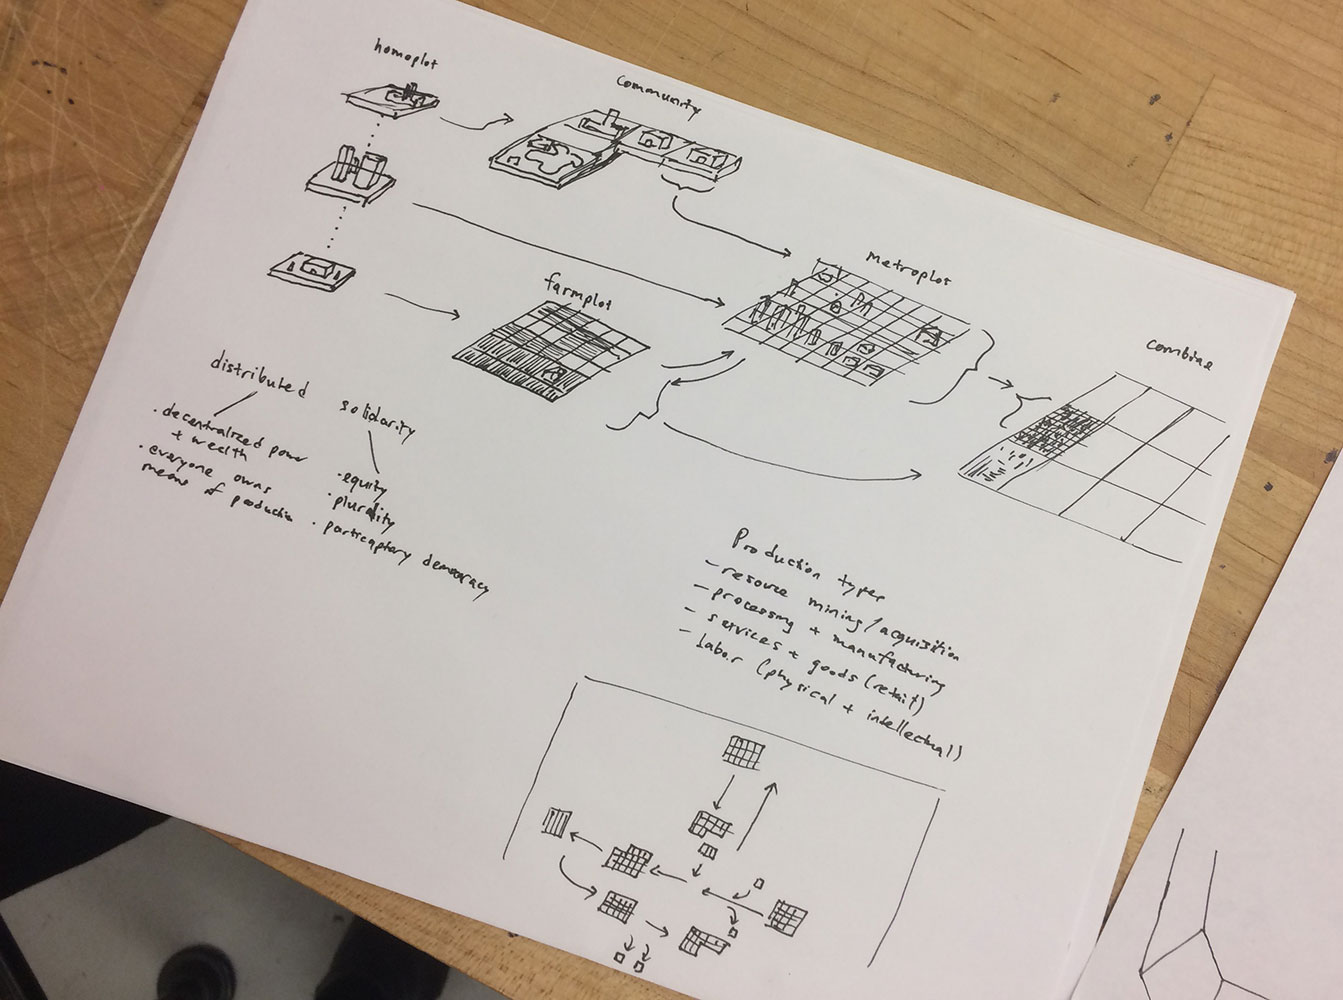 homoplot
community
metroplot
farmplot
combine
distributed
· decentralized power
+ wealth
· everyone owns
means of production
solidarity
· equity
· plurality
· particaptory democracy
Production types
- resource mining/acquisition
- processing + manufacturing
- services + goods (retail)
- labor (physical + intellectual)